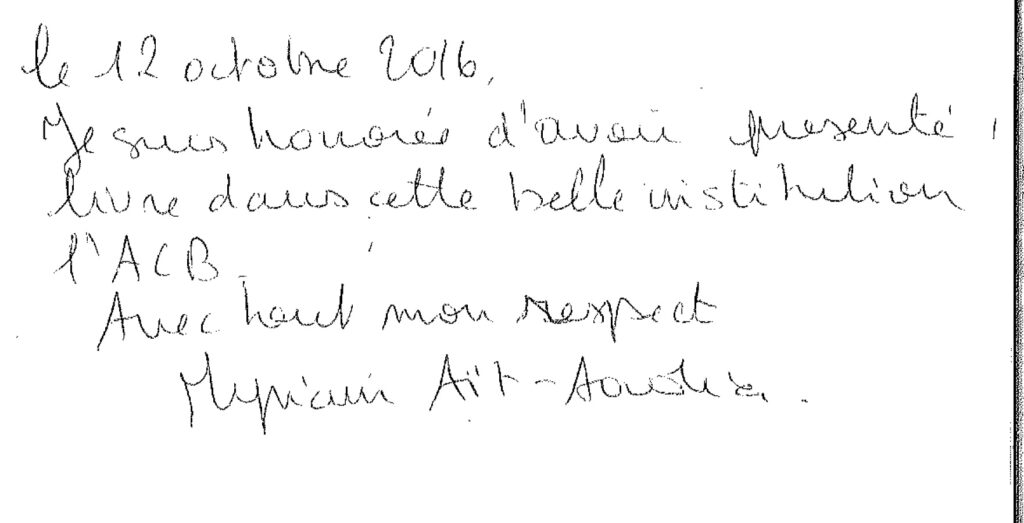 le 12 octobre 2016.
Je suis honorée d'avoir présenté
livre dans cette belle institution
l'ACB.
Avec tout mon respect
Myriam Aït-Aoudia.